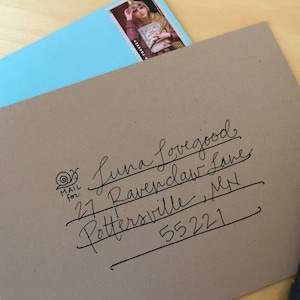 MAIL
for:
Luna Lovegood
27 Ravenclaw Lane
Pottersville, MN
55221